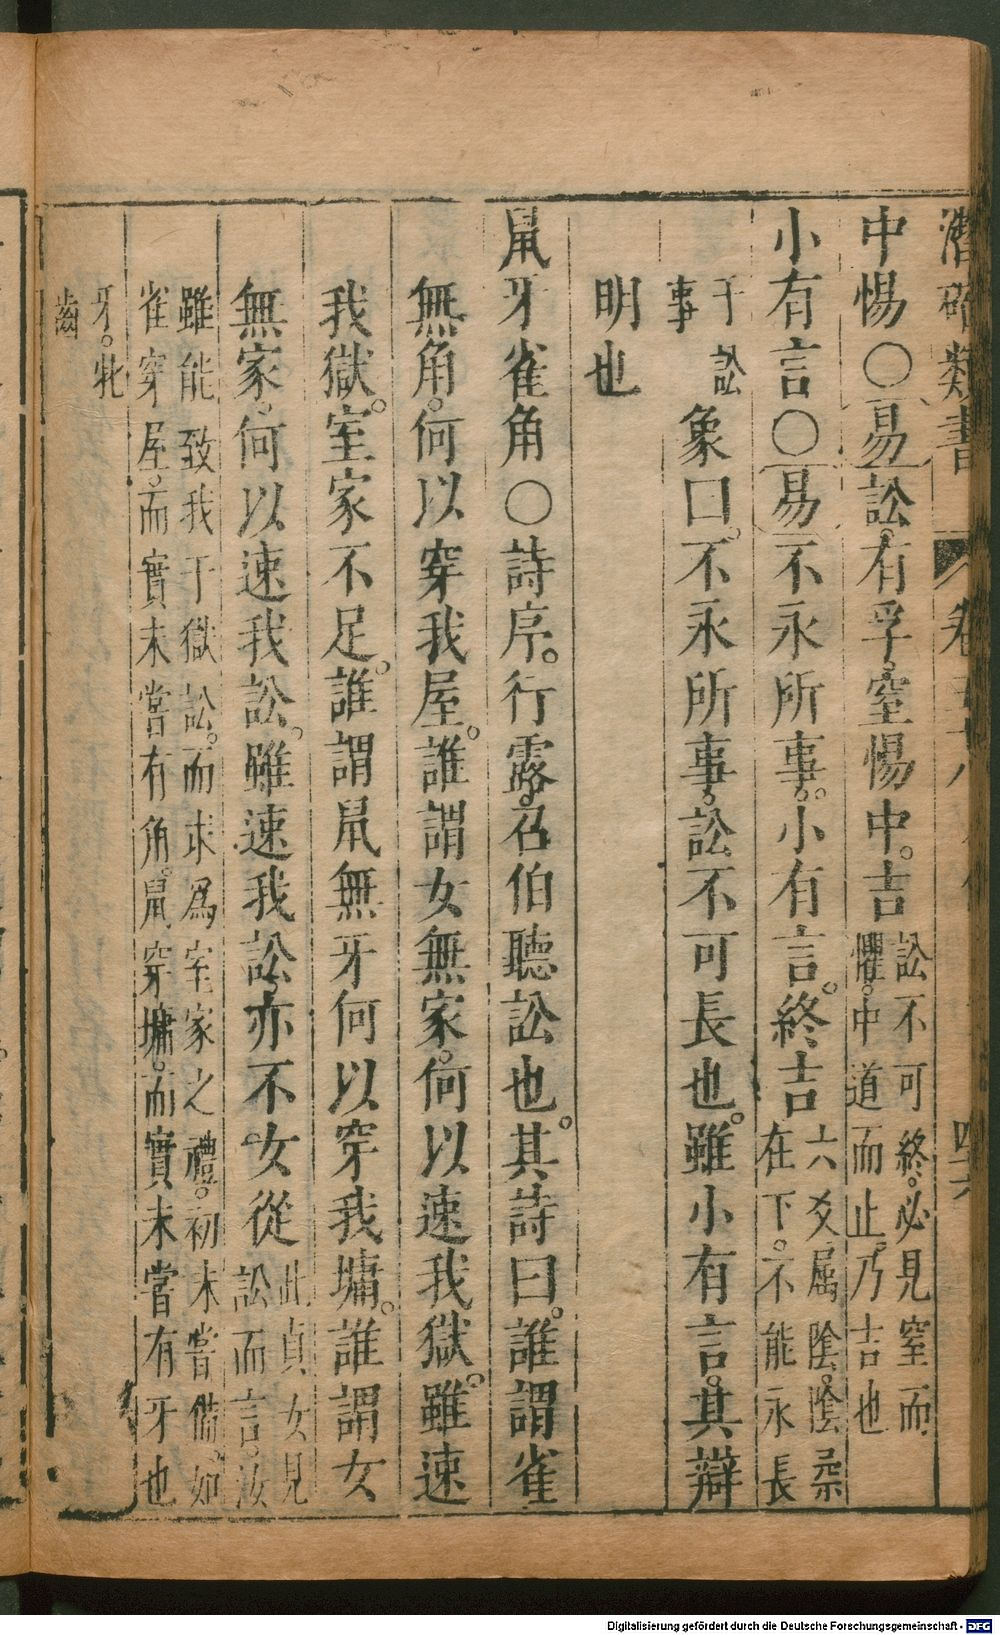 潛確類書 卷五十八 四六
中惕〇易訟。有孚。窒惕中。吉訟不可終。必見窒而
懼。中道而止。乃吉也
小有言〇易不永所事。小有言。終吉六爻屬陰。陰柔
在下。不能永長
于訟
事
象曰。不永所事。訟不可長也。雖小有言。其辯
明也
鼠牙雀角〇詩序。行露。召伯聽訟也。其詩曰。誰謂雀
無角。何以穿我屋。誰謂女無家。何以速我獄。雖速
我獄。室家不足。誰謂鼠無牙何以穿我墉。誰謂女
無家。何以速我訟。雖速我訟。亦不女從此貞女見
訟而言。汝
雖能致我于獄訟。而求爲室家之禮。初未嘗備。如
雀穿屋。而實未嘗有角。鼠穿墉。而實未嘗有牙也
牙。牝
齒
Digitalisierung gefördert durch die Deutsche Forschungsgemeinschaft - DFG